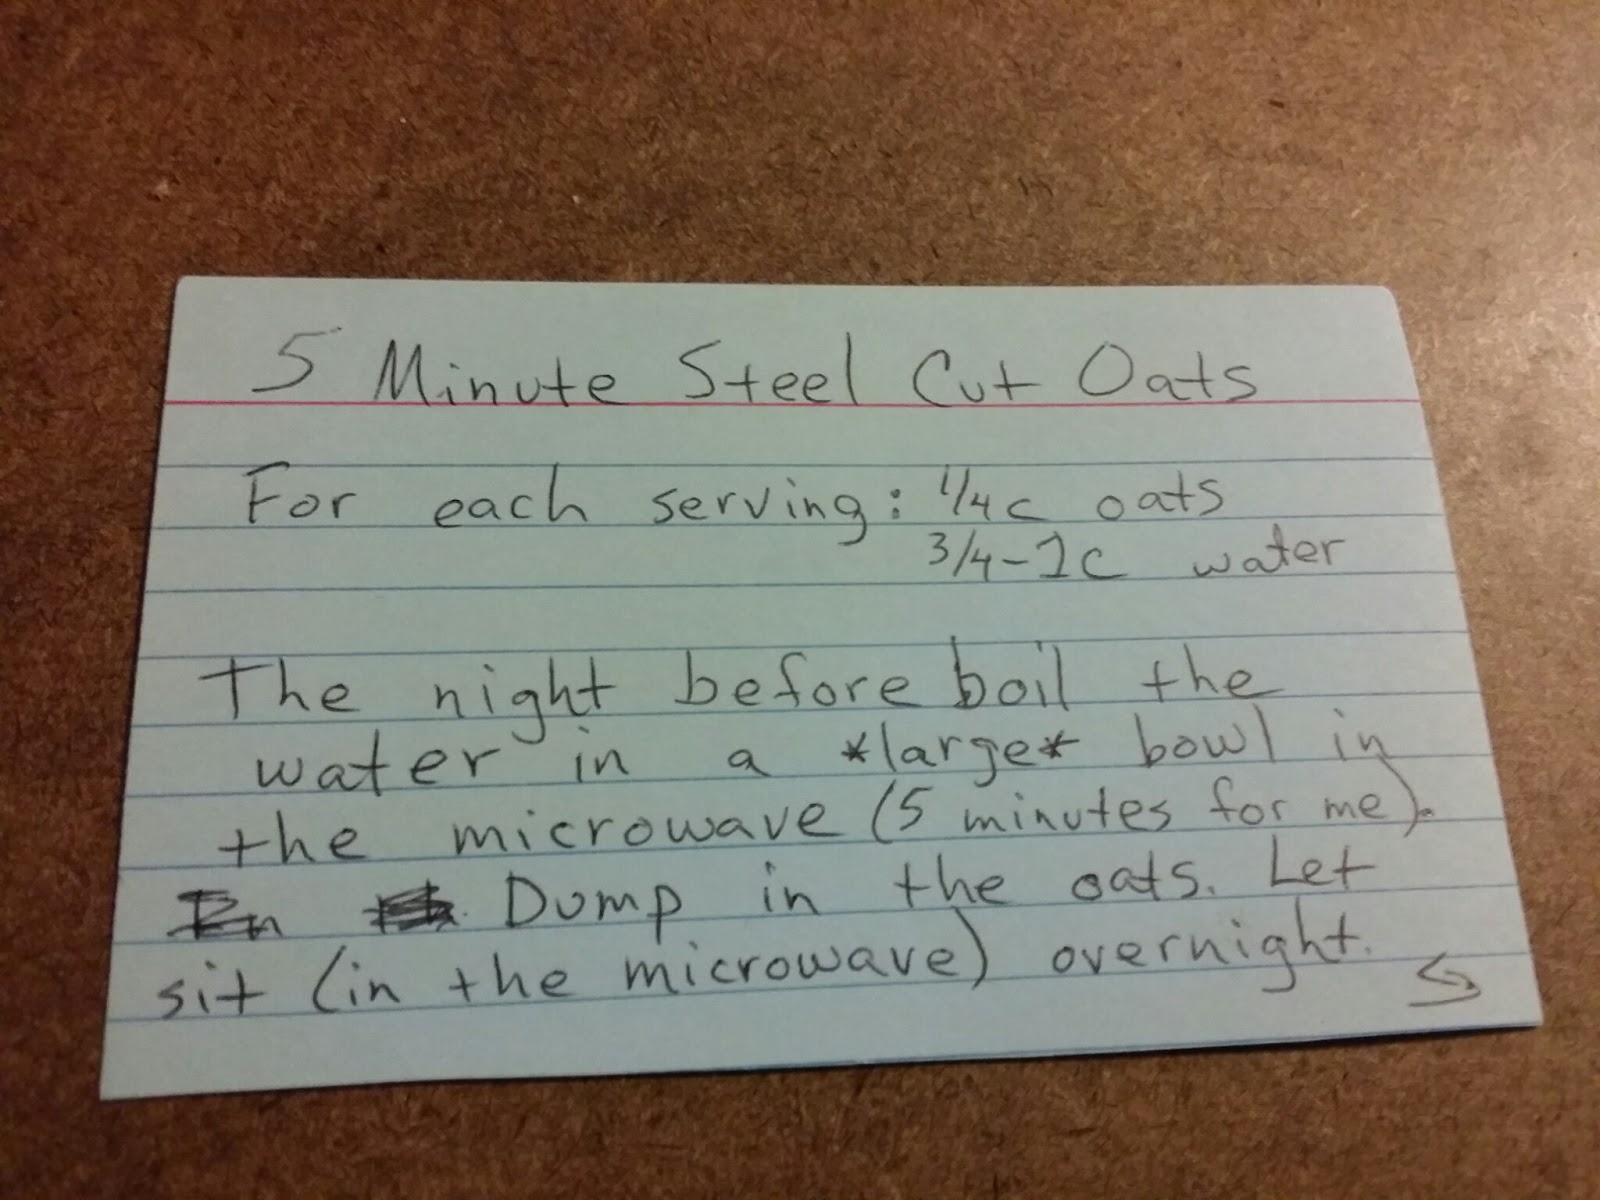 5 Minute Steel Cut Oats
For each serving: 1/4c oats
3/4-1c water
The night before boil the
water in a *large* bowl in
the microwave (5 minutes for me).
Dump in the oats. Let
sit (in the microwave) overnight.